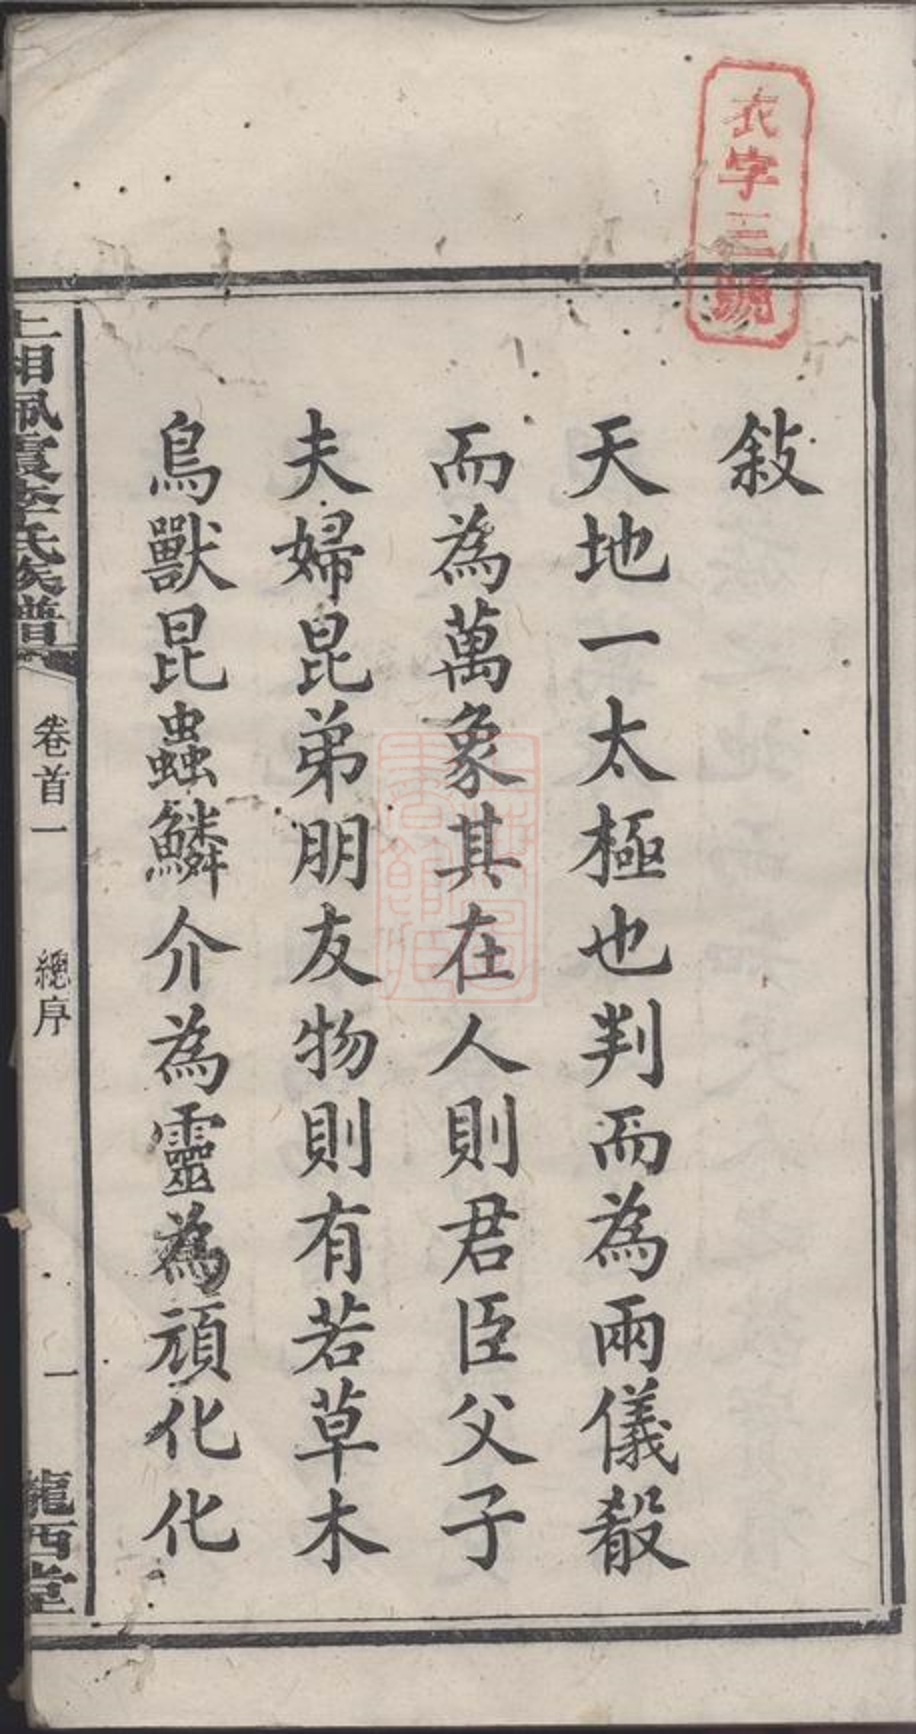 衣字三號
敍
天地一太極也判而為兩儀殽
而為萬象其在人則君臣父子
夫婦昆弟朋友物則有若草木
鳥獸昆蟲鱗介為靈為頑化化
上湘珮霞李氏族譜
卷首一
總序
一
隴西堂